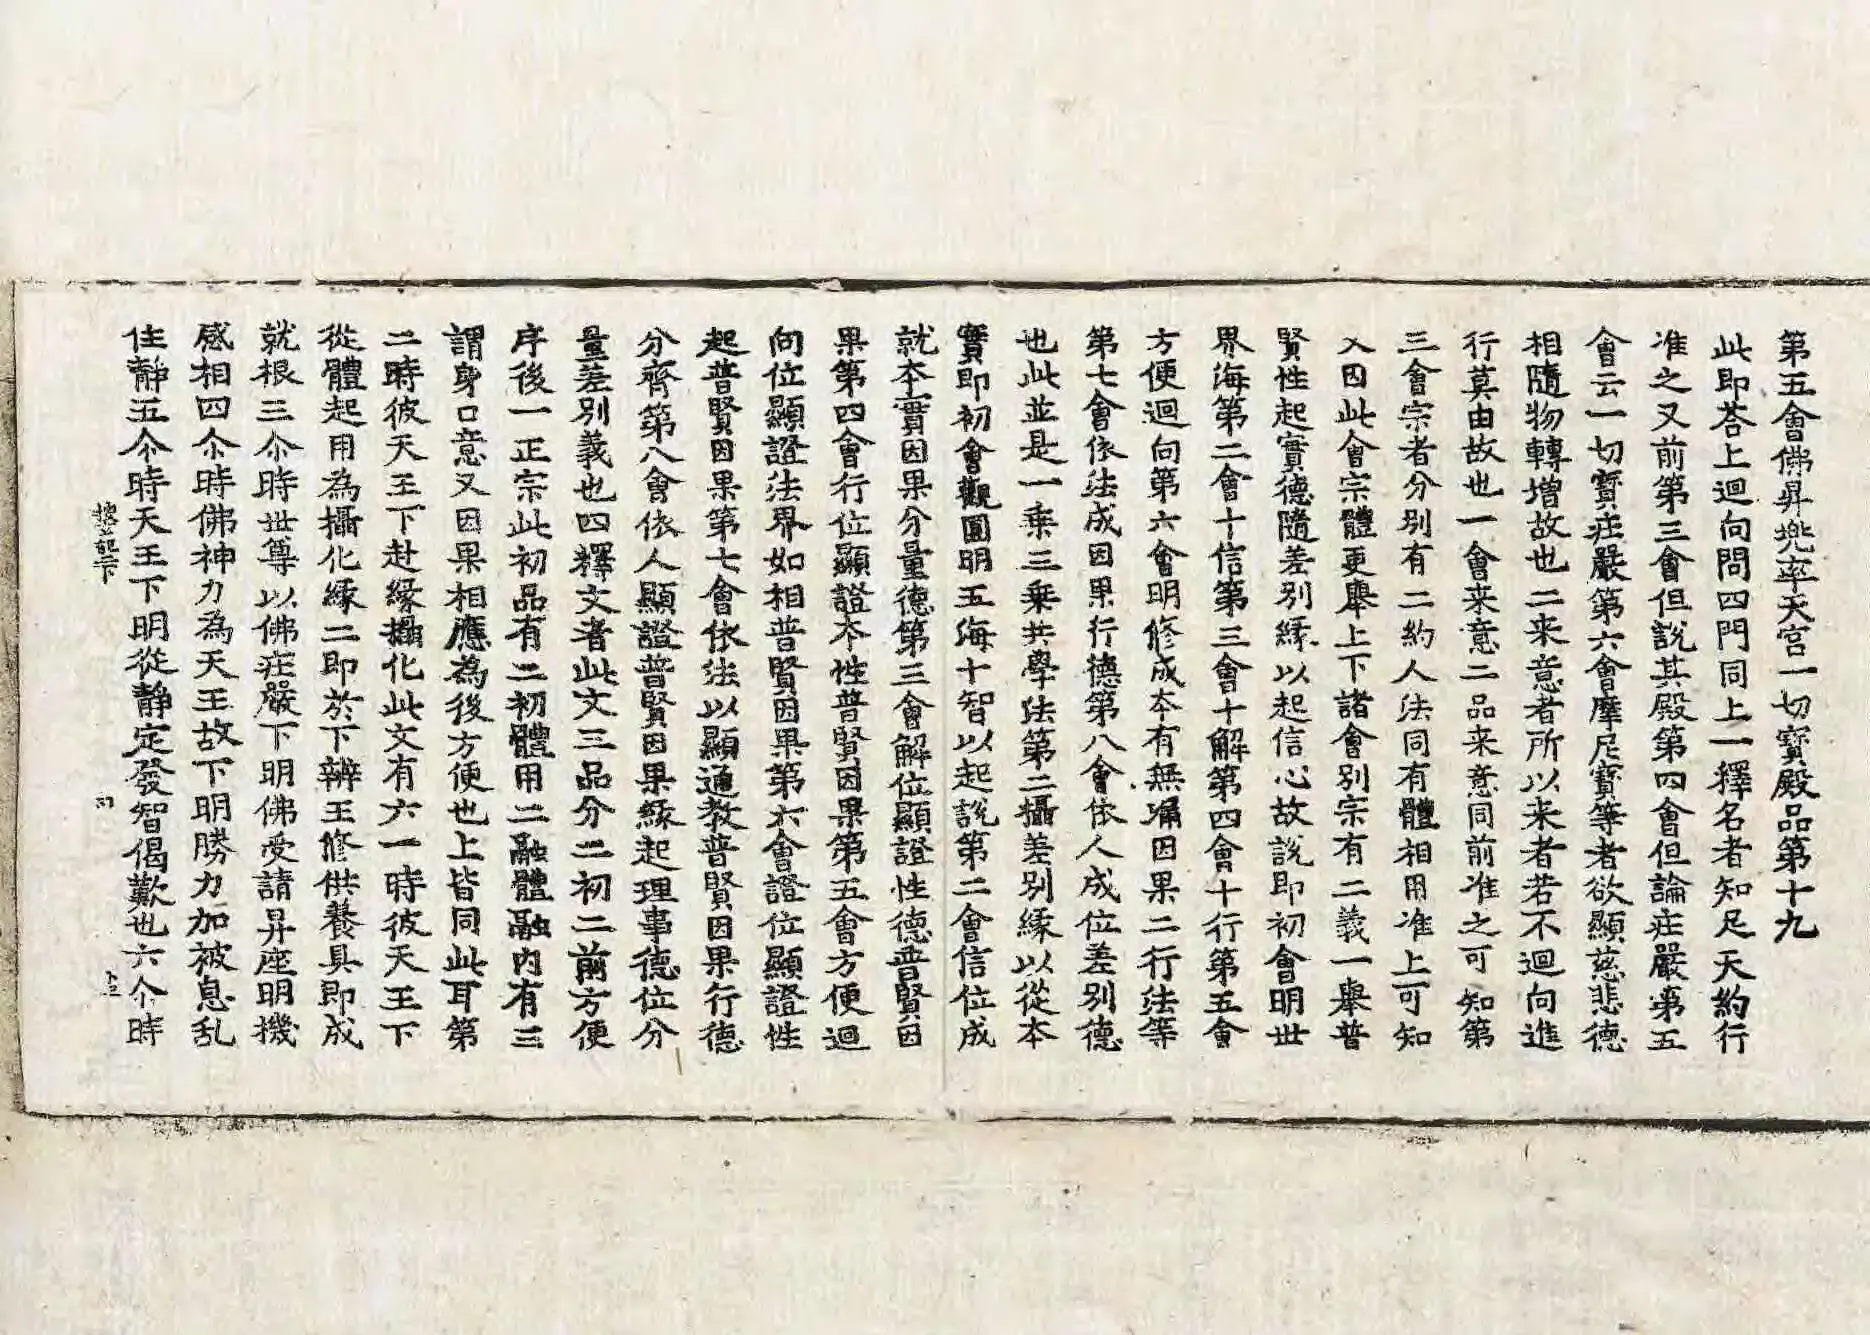 第五會佛昇兜率天宮一切寳殿品第十九
此即荅上迴向問四門同上一釋名者知足天約行
准之又前第三會但說其殿第四會但論庄嚴第五
會云一切寳庄嚴第六會摩尼寳等者欲顯慈悲德
相隨物轉增故也二来意者所以来者若不迴向進
行莫由故也一會来意二品来意同前准之可知第
三會宗者分別有二約人法同有體相用准上可知
入因此會宗體更舉上下諸會別宗有二義一舉普
賢性起實德隨差別縁以起信心故說即初會明世
界海第二會十信第三會十解第四會十行第五會
方便迴向第六會明修成本有無漏因果二行法等
第七會依法成因果行德第八會依人成位差別德
也此並是一乗三乗共學法第二攝差別縁以從本
實即初會觀圓明五海十智以起說第二會信位成
就本實因果分量德第三會解位顯證性德普賢因
果第四會行位顯證本性普賢因果第五會方便迴
向位顯證法界如相普賢因果第六會證位顯證性
起普賢因果第七會依法以顯通教普賢因果行德
分齊第八會依人顯證普賢因果縁起理事德位分
量差別義也四釋文者此文三品分二初二前方便
序後一正宗此初品有二初體用二融體融内有三
謂身口意又因果相應為後方便也上皆同此耳第
二時彼天王下赴縁攝化此文有六一時彼天王下
從體起用為攝化縁二即於下辨王修供養具即成
就根三尒時世尊以佛庄嚴下明佛受請昇座明機
感相四尒時佛神力為天王故下明勝力加被息乱
住靜五尒時天王下明從靜定發智偈歎也六尒時